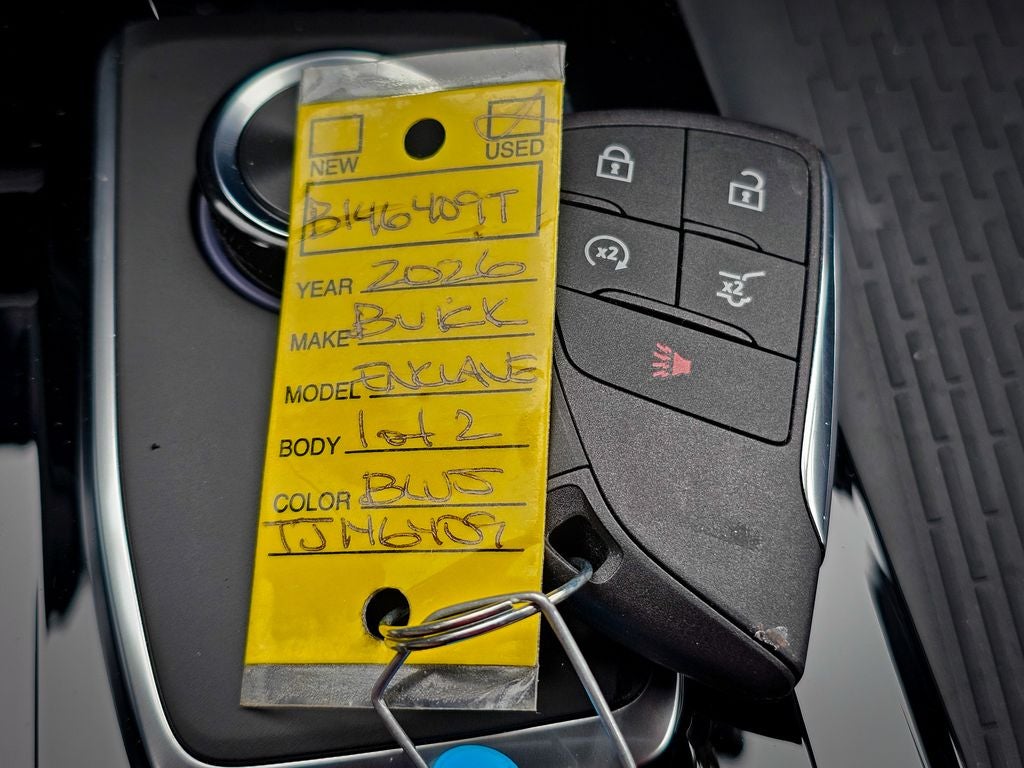 NEW USED
B146409T
YEAR 2026
MAKE BUICK
MODEL ENCLAVE
BODY 1 of 2
COLOR BLUS
TJ146409
x2
x2